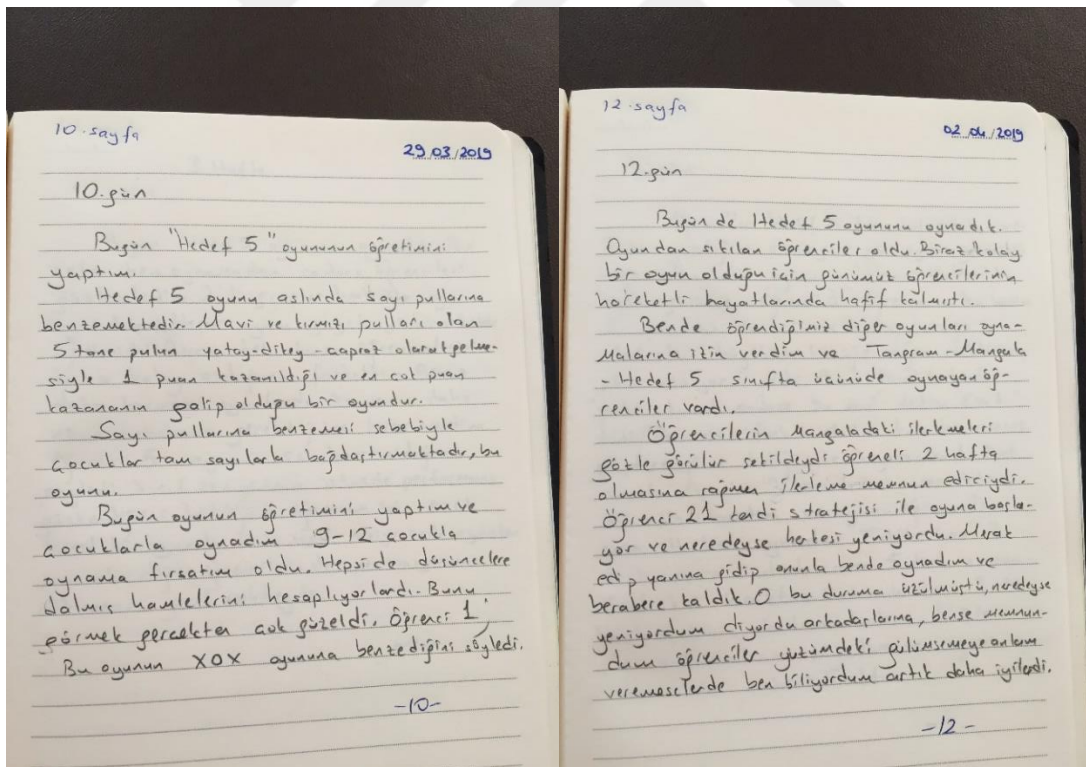 10.sayfa
29.03/2019
10.gün
Bugün "Hedef 5" oyununun öğretimini
yaptım.
Hedef 5 oyunu aslında sayı pullarına
benzemektedir. Mavi ve kırmızı pulları olan
5 tane pulun yatay-dikey-çapraz olarak gelme-
siyle 1 puan kazanıldığı ve en çok puan
kazananın galip olduğu bir oyundur.
Sayı pullarına benzemesi sebebiyle
çocuklar tam sayılarla bağdaştırmaktadır, bu
oyunu.
Bugün oyunun öğretimini yaptım ve
çocuklarla oynadım 9-12 çocukla
oynama fırsatım oldu. Hepside düşüncelere
dalmış hamlelerini hesaplıyorlardı. Bunu
görmek gerçekten çok güzeldi. Öğrenci 1,
Bu oyunun XOX oyununa benzediğini söyledi.
-10-
12.sayfa
02.04./2019
12.gün
Bugün de Hedef 5 oyununu oynadık.
Oyundan sıkılan öğrenciler oldu. Biraz kolay
bir oyun olduğu için günümüz öğrencilerinin
hareketli hayatlarında hafif kalmıştı.
Bende öğrendiğimiz diğer oyunları oyna-
malarına izin verdim ve Tangram-Mangala
-Hedef 5 sınıfta üçünüde oynayan öğ-
renciler vardı.
Öğrencilerin mangaladaki ilerlemeleri
gözle görülür şekildeydi öğreneli 2 hafta
olmasına rağmen ilerleme memnun ediciydi.
Öğrenci 21 kendi stratejisi ile oyuna başla-
yor ve neredeyse herkesi yeniyordu. Merak
edip yanına gidip onunla bende oynadım ve
berabere kaldık. O bu duruma üzülmüştü, neredeyse
yeniyordum diyordu arkadaşlarına, bense memnun-
dum öğrenciler yüzümdeki gülümsemeye anlam
veremeselerde ben biliyordum artık daha iyilerdi.
-12-